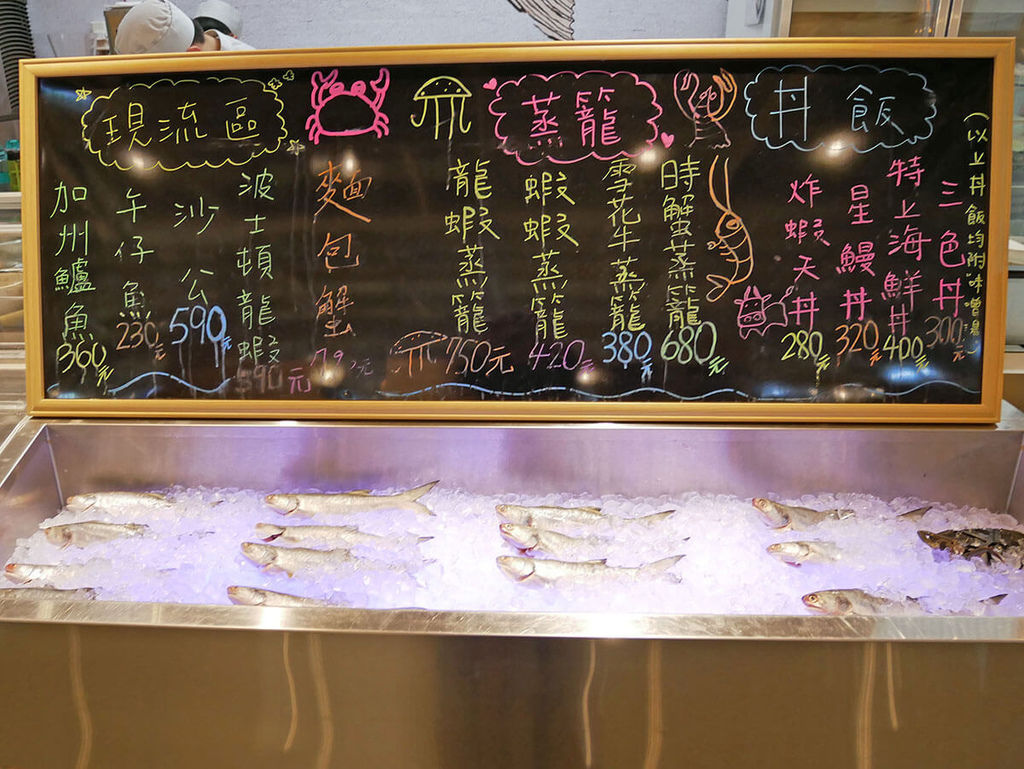 現流區
加州鱸魚 360元
午仔魚 230元
沙公 590元
波士頓龍蝦 590元
麵包蟹
蒸籠
龍蝦蒸籠 750元
蝦蝦蒸籠 420元
雪花牛蒸籠 380元
時蟹蒸籠 680元
丼飯
炸蝦天丼 280元
星鰻丼 320元
特上海鮮丼 400元
三色丼 300元
(以上丼飯均附味噌湯)